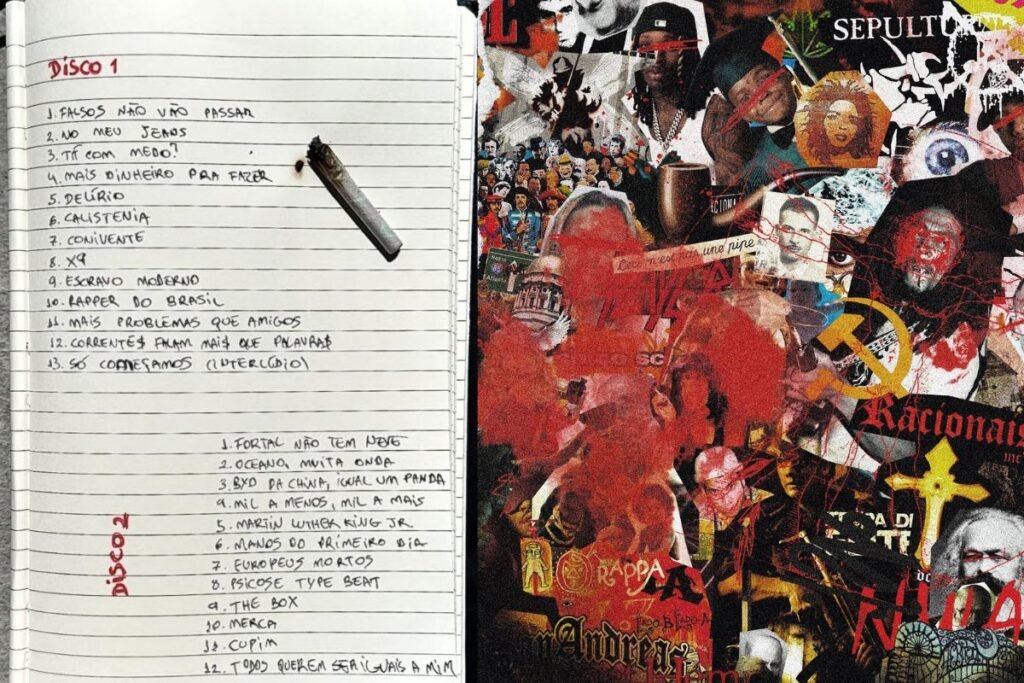 DISCO 1
1. FALSOS NÃO VÃO PASSAR
2. NO MEU JEANS
3. TÁ COM MEDO?
4. MAIS DINHEIRO PRA FAZER
5. DELÍRIO
6. CALISTENIA
7. CONIVENTE
8. X9
9. ESCRAVO MODERNO
10. RAPPER DO BRASIL
11. MAIS PROBLEMAS QUE AMIGOS
12. CORRENTE$ FALAM MAI$ QUE PALAVRA$
13. SÓ COMEÇAMOS (INTERLÚDIO)
DISCO 2
1. FORTAL NÃO TEM NEVE
2. OCEANO, MUITA ONDA
3. BXD DA CHINA, IGUAL UM PANDA
4. MIL A MENOS, MIL A MAIS
5. MARTIN LUTHER KING JR.
6. MANOS DO PRIMEIRO DIA
7. EUROPEUS MORTOS
8. PSICOSE TYPE BEAT
9. THE BOX
10. MERCA
11. CUPIM
12. TODOS QUEREM SER IGUAIS A MIM
SEPULTU
Ceci n'est pas une pipe
SC
Racionais
mc
RAPPA
Andreas